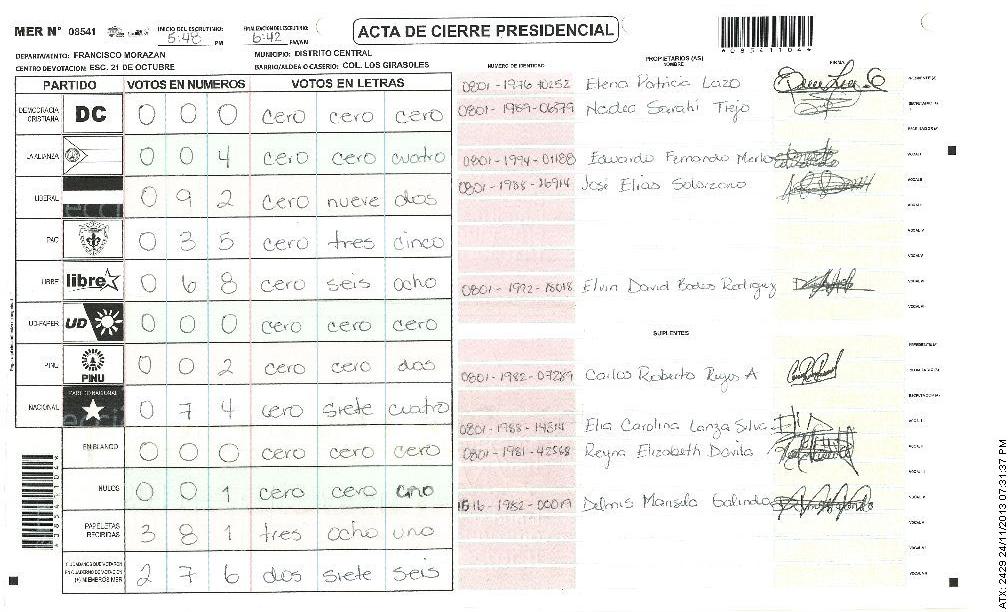 MER N° 08541 INICIO DEL ESCRUTINIO: 5:48 PM FINALIZACION DEL ESCRUTINIO: 6:42 PM/AM
ACTA DE CIERRE PRESIDENCIAL
DEPARTAMENTO: FRANCISCO MORAZAN MUNICIPIO: DISTRITO CENTRAL
CENTRO DE VOTACION: ESC. 21 DE OCTUBRE BARRIO/ALDEA O CASERIO: COL. LOS GIRASOLES
PARTIDO VOTOS EN NUMEROS VOTOS EN LETRAS
DEMOCRACIA CRISTIANA DC 0 0 0 cero cero cero
LA ALIANZA 0 0 4 cero cero cuatro
LIBERAL 0 9 2 cero nueve dos
PAC 0 3 5 cero tres cinco
LIBRE libre 0 6 8 cero seis ocho
UD-FAPER UD 0 0 0 cero cero cero
PINU PINU 0 0 2 cero cero dos
NACIONAL PARTIDO NACIONAL 0 7 4 cero siete cuatro
EN BLANCO 0 0 0 cero cero cero
NULOS 0 0 1 cero cero
PAPELETAS RECIBIDAS 3 8 1 tres ocho uno
CIUDADANOS QUE VOTARON EN CUADERNO DE VOTACION (+) MIEMBROS MER 2 7 6 dos siete seis
NUMERO DE IDENTIDAD PROPIETARIOS (AS) NOMBRE FIRMA
0801-1976-10252 Elena Patricia Lazo
0801-1989-06579 Nadia Sarahi Trejo
0801-1994-01188 Eduardo Fernando Merlo
0801-1988-26914 Jose Elias Solorzano
0801-1992-18018 Elvin David Bodes Rodriguez
SUPLENTES
0801-1982-07289 Carlos Roberto Reyes A
0801-1988-14514 Elia Carolina Lanza Silva
0801-1981-42568 Reyna Elizabeth Davila
1516-1982-00019 Delmis Marisela Galindo
ATX: 2429 24/11/2013 07:31:37 PM